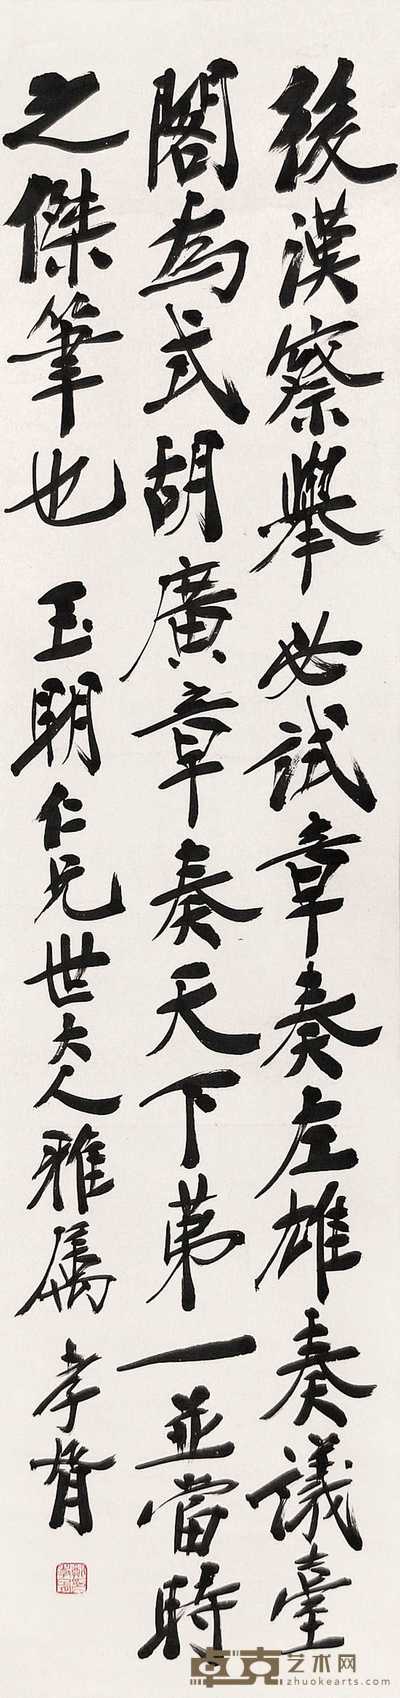 後漢察舉必試章奏左雄奏議臺
閣為式胡廣章奏天下第一並當時
之傑筆也 玉朗仁兄世大人雅属 孝胥
卓克艺术网
zhuokearts.com